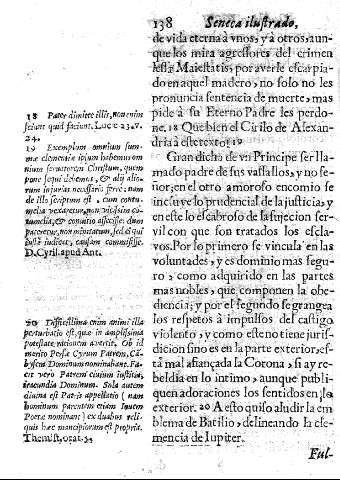 138 Seneca ilustrado,
de vida eterna à vnos, y à otros; aun-
que los mira agressores del crimen
lesæ Maiestatis, por averle escarpia-
do en aquel madero; no solo no les
pronuncia sentencia de muerte; mas
pide a su Eterno Padre les perdo-
ne. 18 Que bien el Cirilo de Alexan-
dria à este texto! 19
Gran dicha de vn Principe ser lla-
mado padre de sus vassallos, y no se-
ñor; en el otro amoroso encomio se
incluye lo prudencial de la justicia; y
en este lo escabroso de la sujecion ser-
vil con que son tratados los escla-
vos. Por lo primero se vincula en las
voluntades, y es dominio mas segu-
ro, como adquirido en las partes
mas nobles, que componen la obe-
diencia; y por el segundo se grangea
los respetos à impulsos del castigo
violento, y como este no tiene juris-
diccion sino es en la parte exterior, es-
tà mal afiançada la Corona, si ay re-
beldia en lo intimo, aunque publi-
quen adoraciones los sentidos en lo
exterior. 20 A esto quiso aludir la em
blema de Batilio, delineando la cle-
mencia de Iupiter.
Ful-
18 Pater dimitte illis, non enim
sciunt quid faciunt. Luc. c. 23. v.
24.
19 Exemplum omnium sum-
mæ clementiæ ipsum habemus om
nium servatorem Christum, quem
pone sequi debemus, & alij illo-
rum injurias necessariò ferre; nam
de illo scriptum est, cum contu-
melia vexaretur, non vicissim cō-
tumelia, & convitio affecisse: dum
pateretur, non minitatum, sed ei qui
iustè iudicat, causam commisisse.
D. Cyril. apud Ant.
20 Difficillima enim animi illa
perturbatio est, quæ in amplissima
potestate rationem avertit. Ob id
merito Persæ Cyrum Patrem, Cā-
bysem Dominum nominabant. Fa-
cit vero Patrem cuiusm iustitia,
iracundia Dominum. Sola autem
divina est Patris appellatio ( nam
hominum parentem etiam Iovem
Poetæ nominant ) ex duabus reli-
quis hæc mancipiorum est propria.
Themist. orat. 34